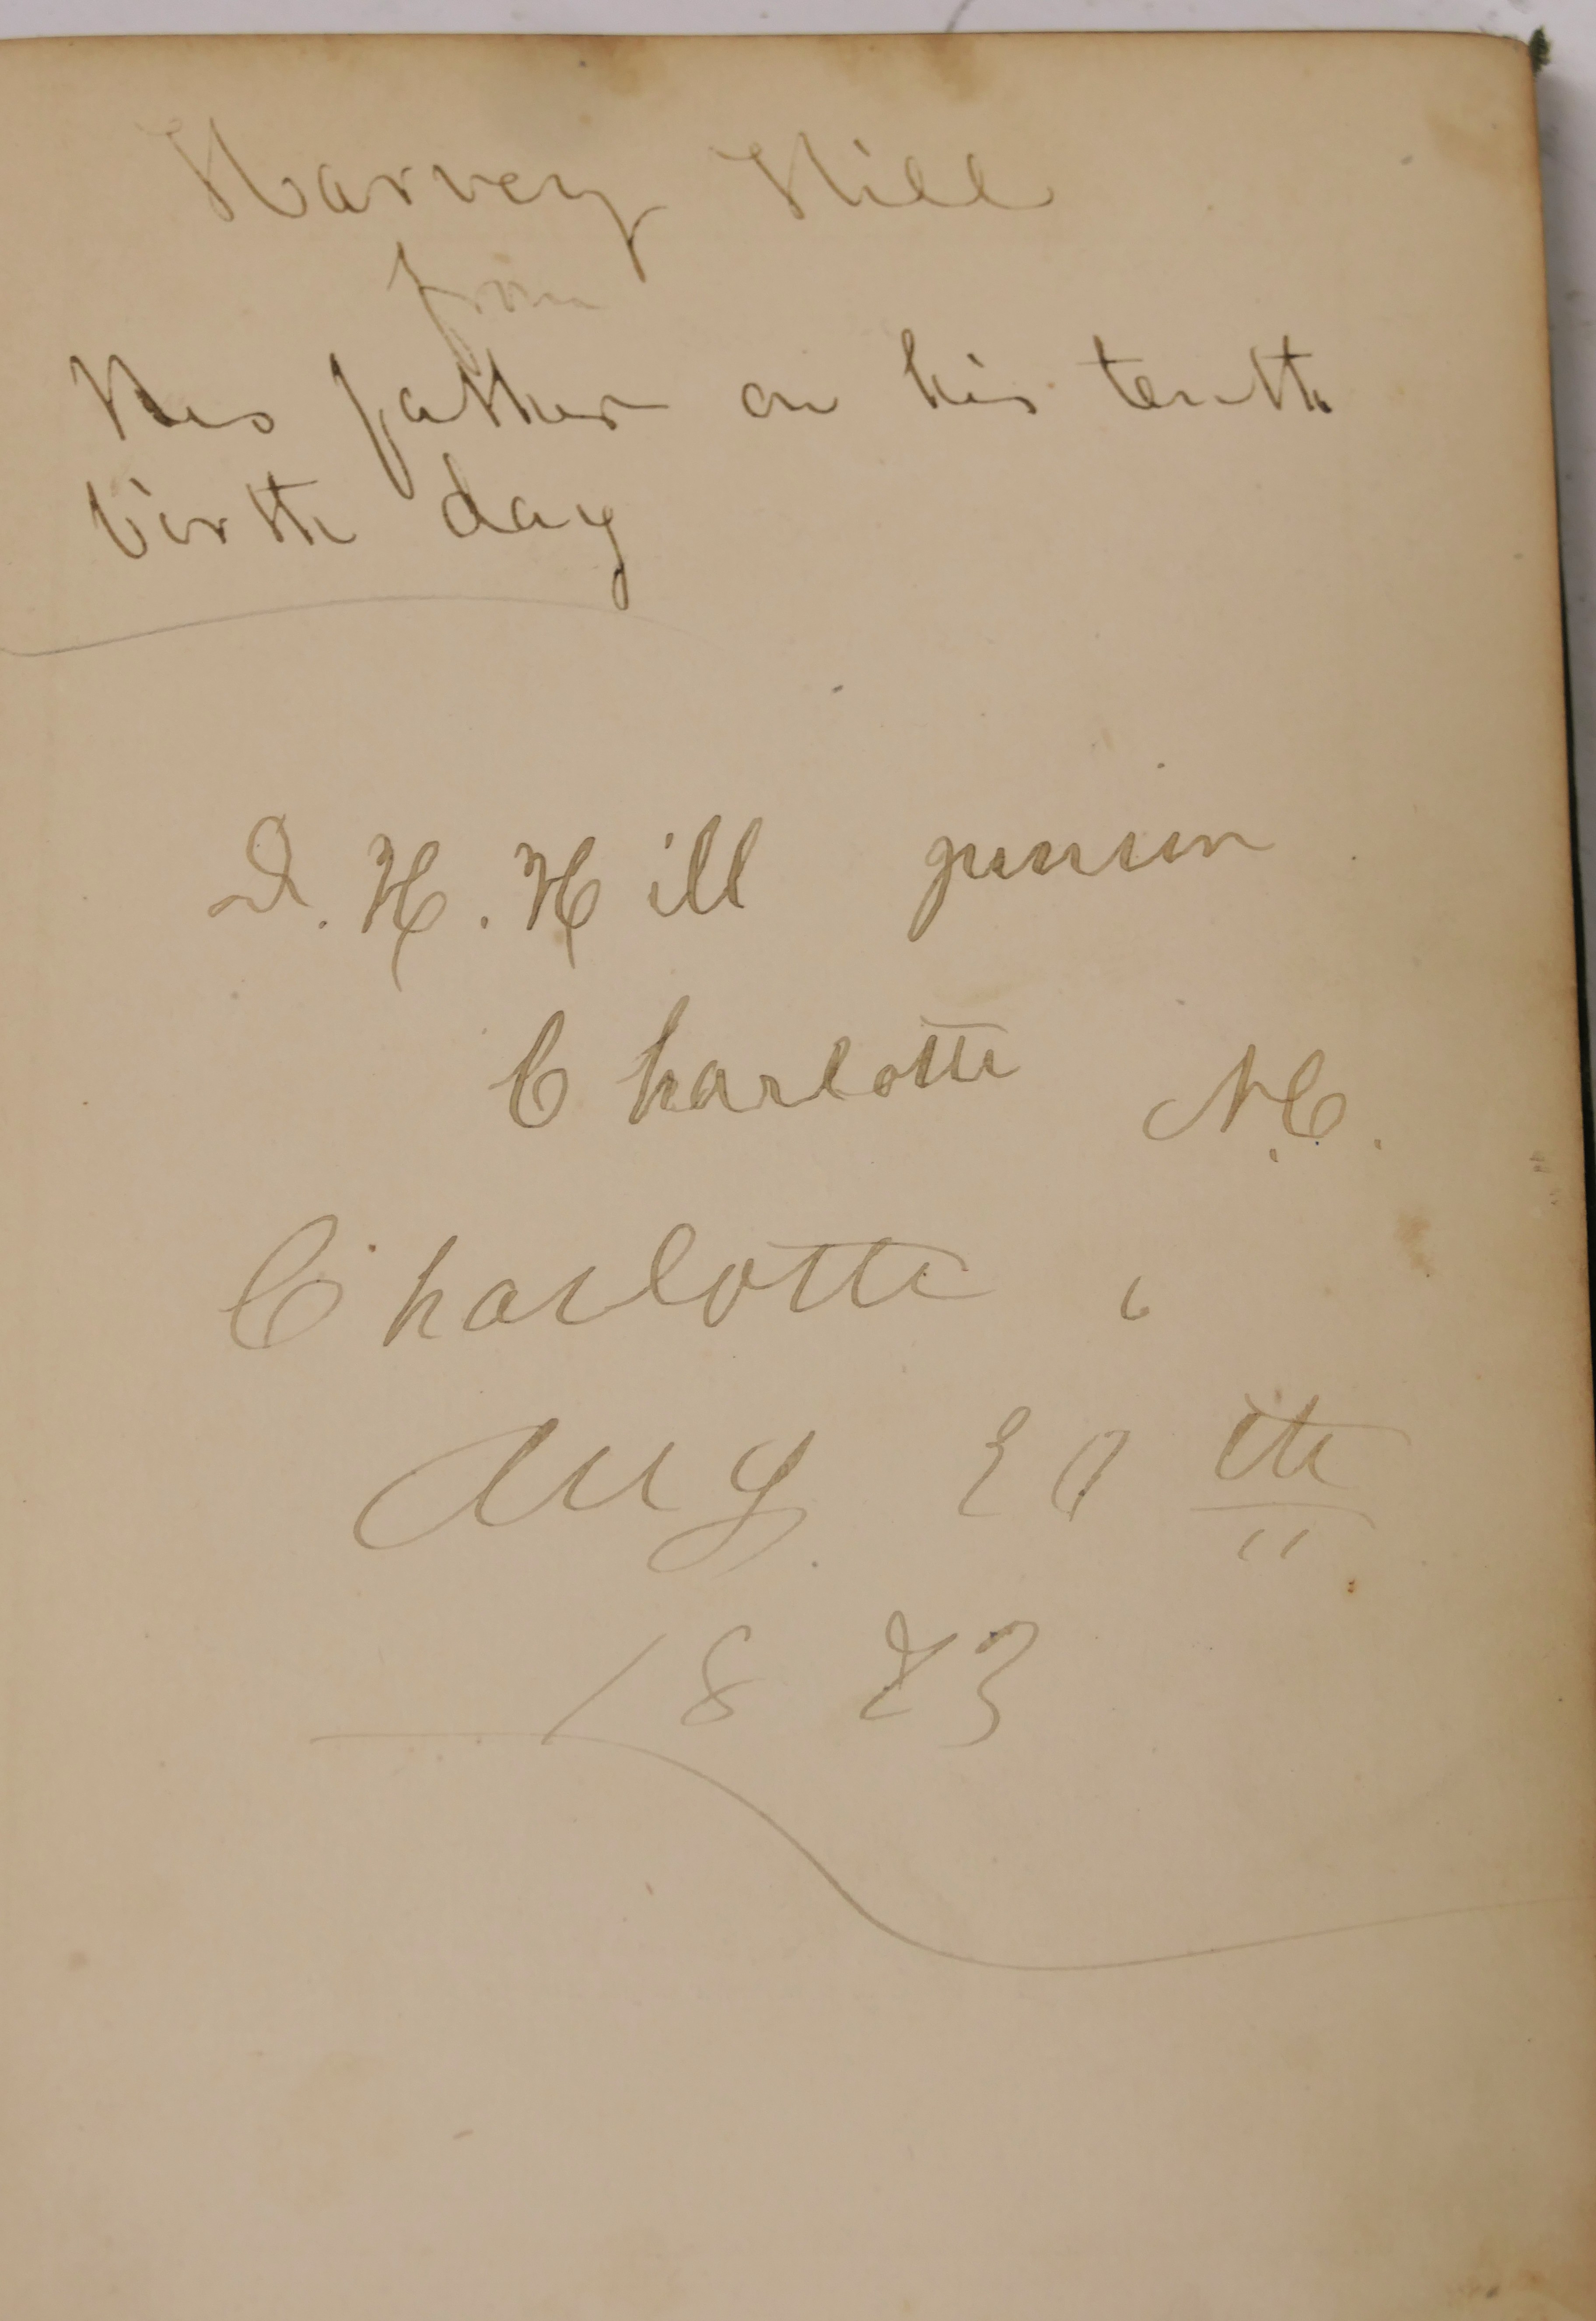 Harvey Hill
from
His father on his tenth
birth day
D. H. Hill junior
Charlotte N.C.
Charlotte "
Aug 30th
1873